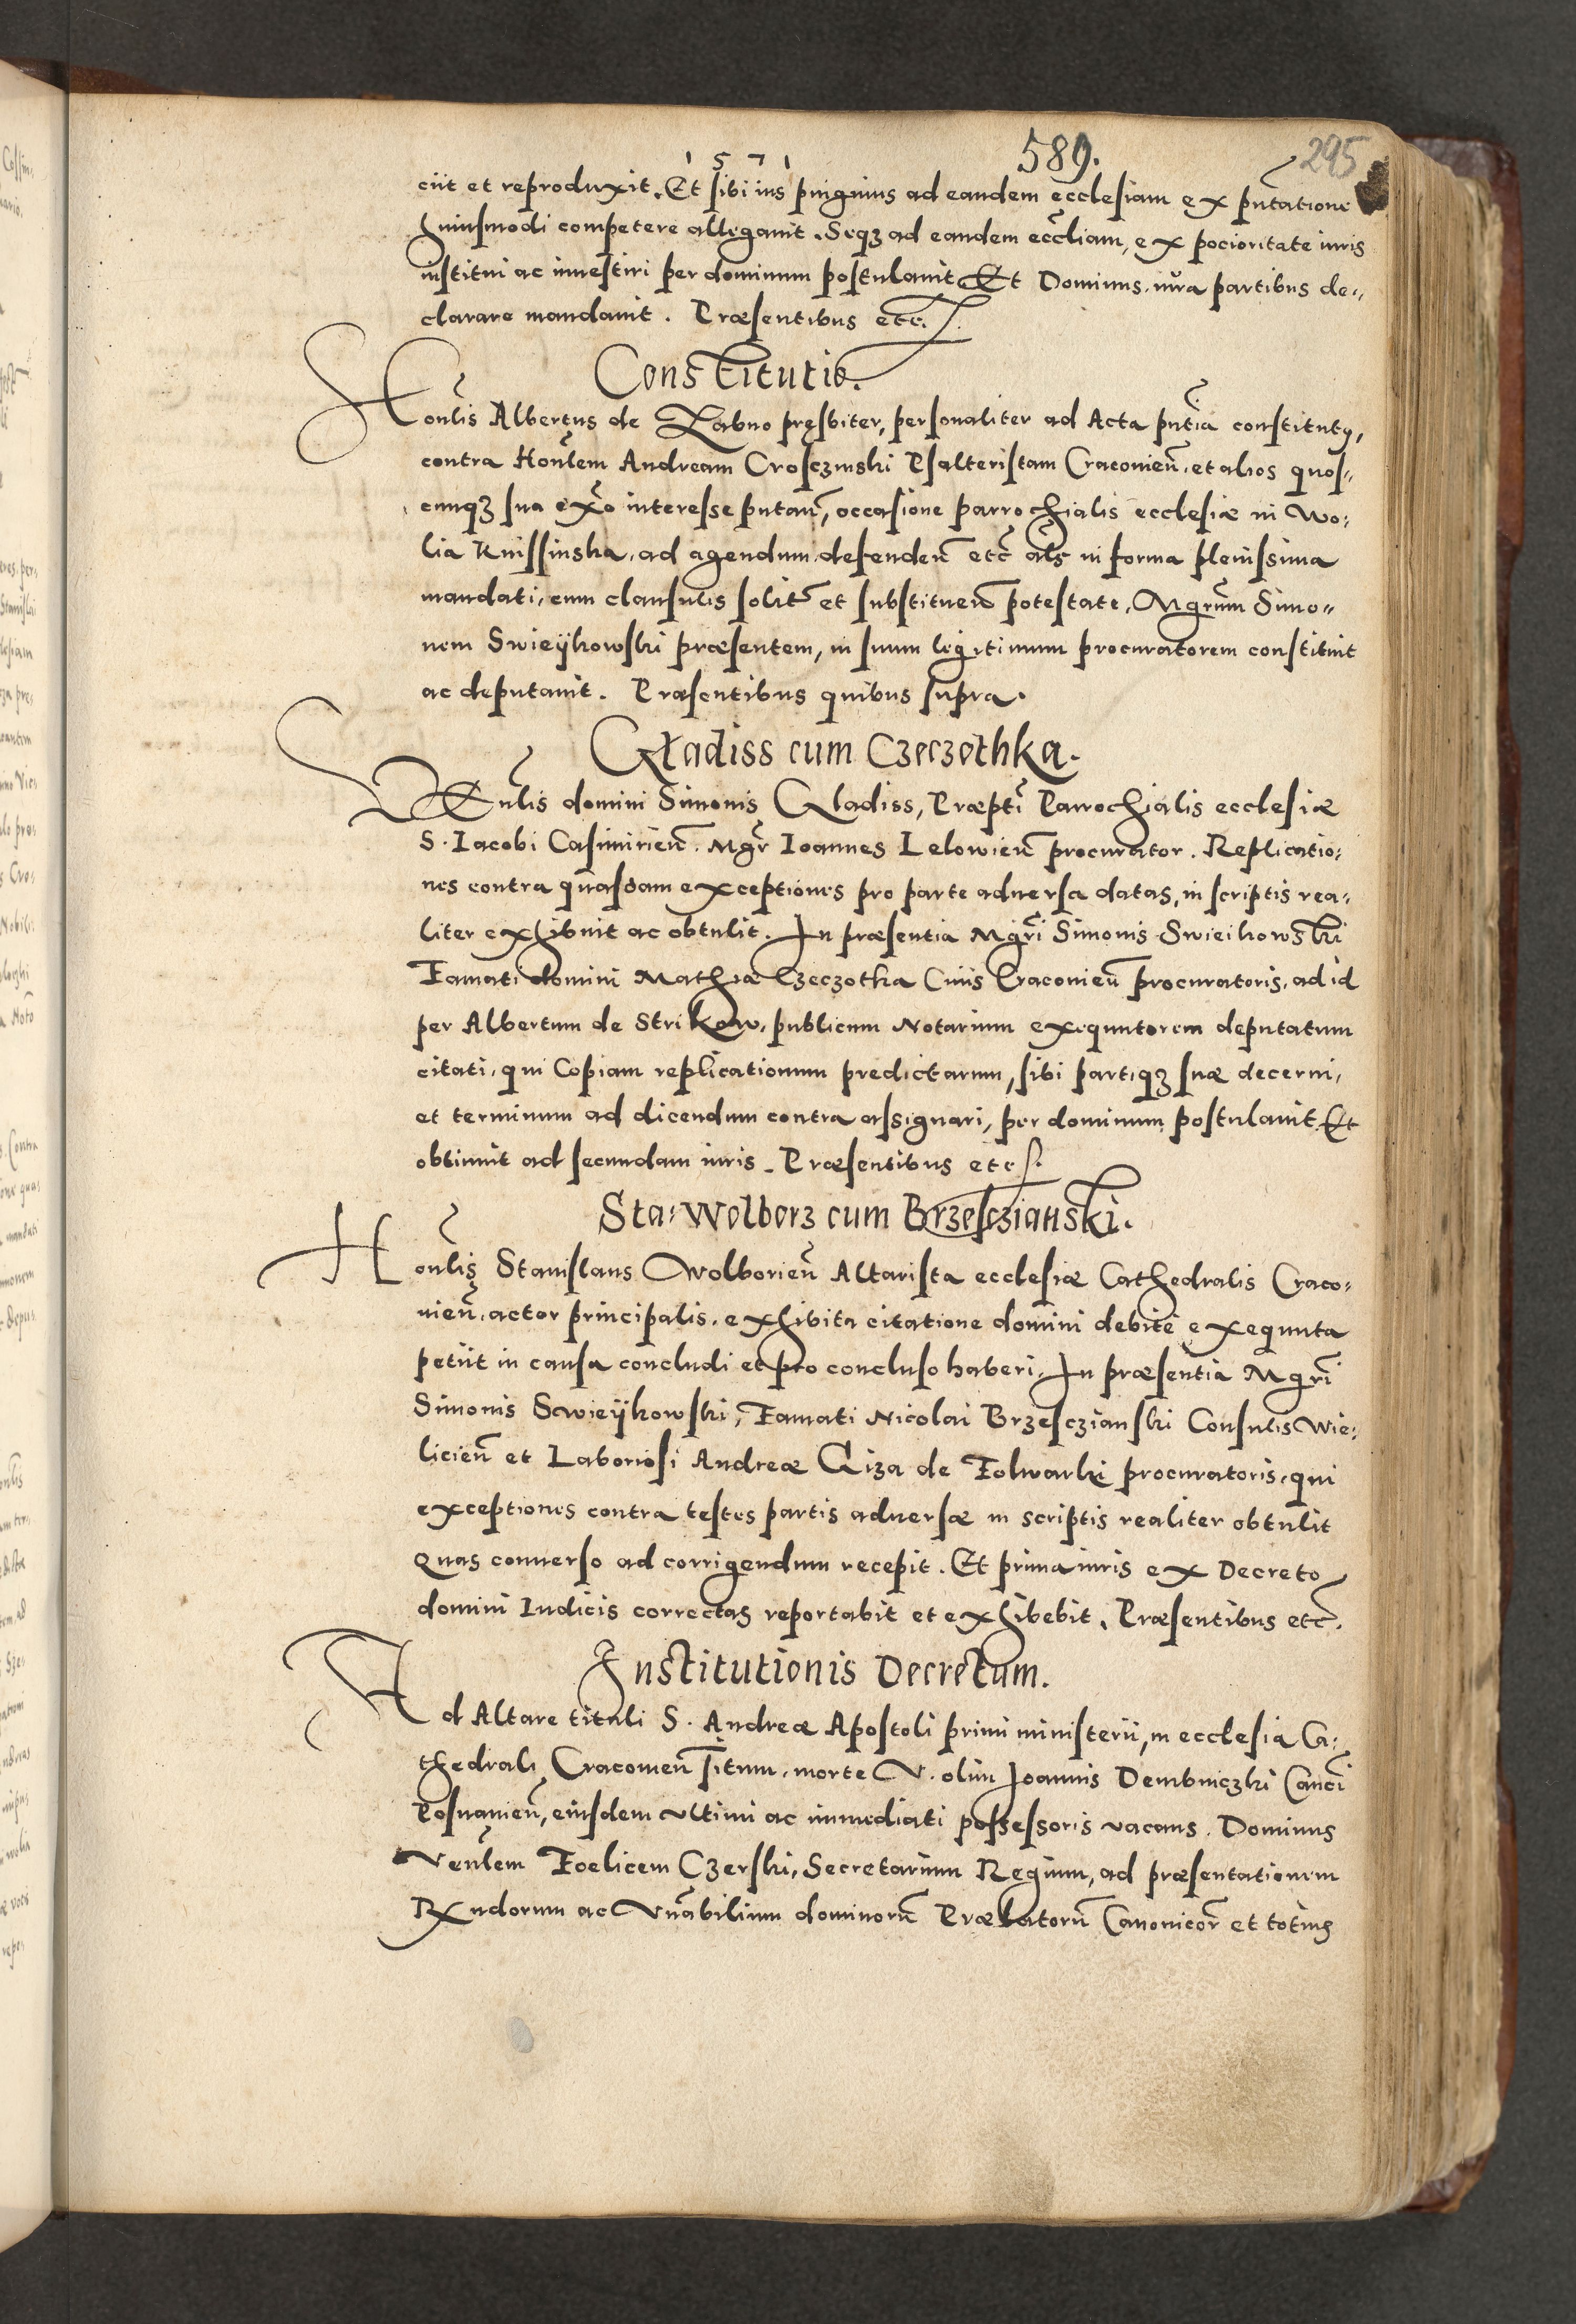 1571
589.
295
ciit et reproduxit. Et sibi ius pinguius ad eandem ecclesiam ex pñtatione
huiusmodi competere allegauit. Seqꝫ ad eandem eccliam, ex pocioritate iuris
institui ac inuestiri per dominum postulauit. Et Dominus iura partibus de„
clarare mandauit. Præsentibus etc.
Constitutio.
Honlis Albertus de Labno pręsbiter, personaliter ad Acta pñtia constitutꝰ,
contra Honlem Andream Crosczinski Psalteristam Cracovień. et alios quos„
cunqꝫ sua exõ interesse putań, occasione parrochialis ecclesiæ in Wo:
lia Knissinska, ad agendum defendeń etc̃ als in forma plenissima
mandati, cum clausulis solit̃ et substitueñ potestate, Mgrum Simo„
nem Swieÿkowski præsentem, in suum legitimum procuratorem constituit
ac deputauit. Præsentibus quibus supra.
Gładiss cum Czeczothka.
Venlis domini Simonis Gladiss, Præpti Parrochialis ecclesiæ
S. Iacobi Casimirień. Mgr Ioannes Lelowień procurator. Replicatio:
nes contra quasdam exceptiones pro parte aduersa datas, in scriptis rea:
liter exhibuit ac obtulit. In præsentia Mgri Simonis Swieikowski
Famati domini Mathiæ Czeczotka Ciuis Cracovień procuratoris, ad id
per Albertum de Strikow, publicum Notarium exequutorem deputatum
citati, qui Copiam replicationum predictarum, sibi partiqꝫ suæ decerni,
et terminum ad dicendum contra assignari, per dominum postulauit. Et
obtinuit ad secundam iuris. Præsentibus etc.
Sta: Wolborz cum Brzesczianski.
Honlis Stanislaus Wolborień Altarista ecclesiæ Cathedralis Craco:
vień. actor principalis. exhibita citatione domini debite exequuta
petiit in causa concludi et pro concluso haberi. In præsentia Mgri
Simonis Swieÿkowski, Famati Nicolai Brzesczianski Consulis Wie:
licień et Laboriosi Andreæ Giza de Folwarki procuratoris, qui
exceptiones contra testes partis aduersæ in scriptis realiter obtulit
Quas conuerso ad corrigendum recepit. Et prima iuris ex Decreto
domini Iudicis correctas reportabit et exhibebit. Præsentibus etc̃.
Institutionis Decretum.
Ad Altare tituli S. Andreæ Apostoli primi ministerii, in ecclesia Ca:
thedrali Cracovień situm. morte V. olim Joannis Dembniczki Canci
Posnanień, eiusdem vltimi ac immediati possessoris vacans. Dominus
Venlem Foelicem Czerski, Secretarium Regium, ad præsentationem
Rxndorum ac Vnabilium dominorũ Prælatorũ Canonicor̃ et totius